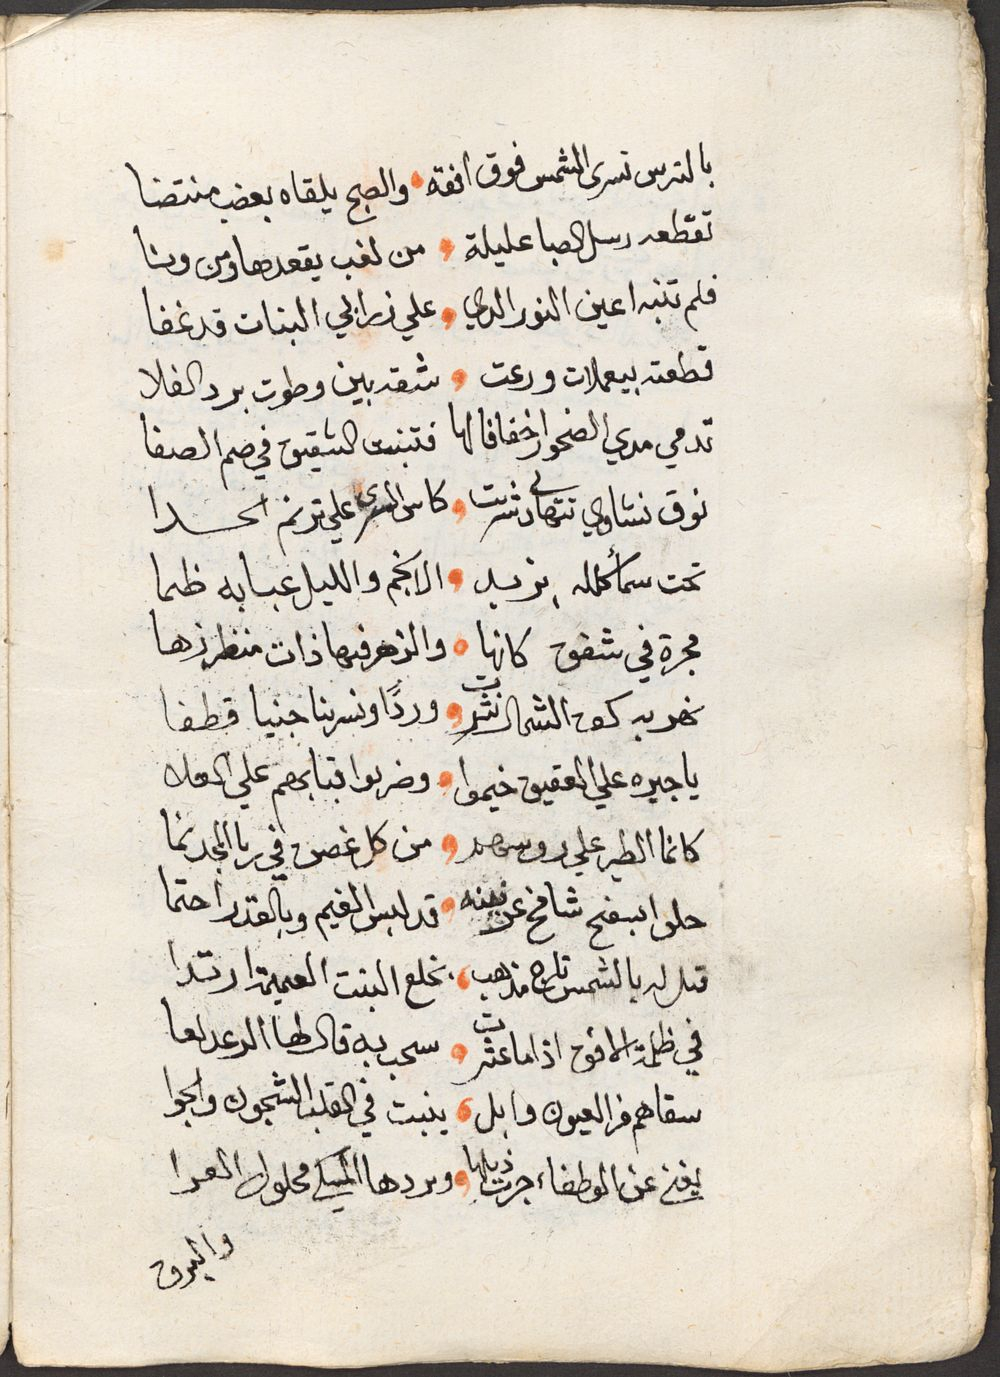 بالترس تسرى الشمس فوق افقه والصبح يلقاه بعضب منتضا
تقطعه رسل الصبا عليلة من لغب يقعدها ومن ونا
فلم تنبه اعين النور الذي علي زرابي النبات قد غفا
قطعته بيعملات ورعت شقة بين وطوت برد الفلا
تدمي مدي الضحوا خفافا لها فتنبت الشقيق في صم الصفا
نوق نشاوي شربت كاس السري علي ترنم الحدا
تحت سما الانجم والليل عبابه طما
مجرة في شفق كانها والزهر فيها ذات منظر زها
نهر به كف الشمال نثرت وردًا ونسرينا جنيا قطفا
يا جيره علي العقيق خيموا وضربوا قبابهم علي العلا
كانما الطير علي روسهم من كل غصن في ربا المجد نما
حلوا بسفح شامخ عرنينه قد لبس الغيم وبالقدر احتما
بالشمس تاج مذهب بخلع النبت العميم ارتدا
في ظلمة الافق اذا ما عثرت سحب به قال لها الرعد لعا
سقاهم من العيون وابل ينبت في القلب الشجون والجوا
يغني عن الوطفاء جرت ذيلها وبردها محلول العرا
والبرق